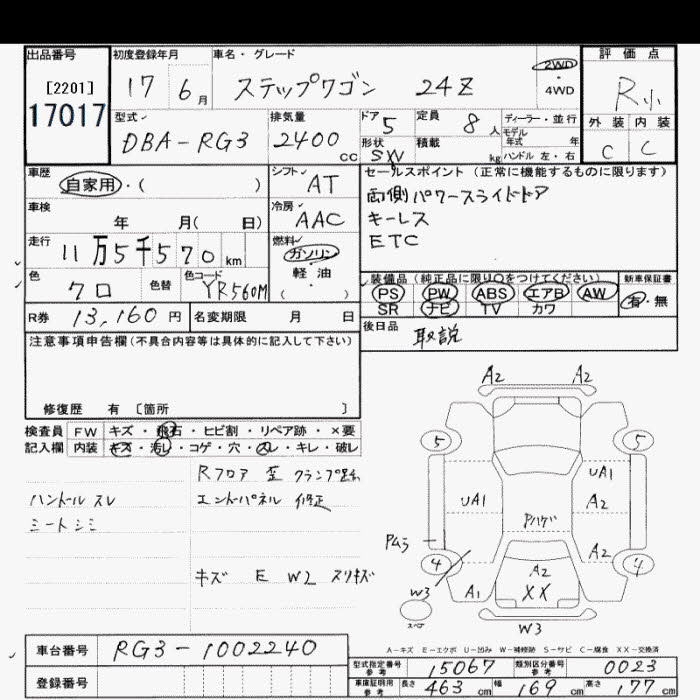 出品番号 初度登録年月 車名・グレード 評価点
[2201] 17 6月 ステップワゴン 24Z 2WD・4WD R小
17017
型式 排気量 ドア 5 定員 8人 ディーラー・並行 外装 内装
DBA-RG3 2400cc 形状 SW 積載 kg モデル年式 年 ハンドル 左・右 C C
車歴 シフト AT セールスポイント(正常に機能するものに限ります)
自家用・( ) 両側パワースライドドア
車検 年 月( 日) 冷房 AAC キーレス
走行 11万5千570km 燃料 ガソリン・軽油・( ) ETC
色 クロ 色替 色コード YR560M 装備品(純正品に限り○をつけてください) 新車保証書
PS PW ABS エアB AW 有・無
SR ナビ TV カワ
R券 13,160円 名変期限 月 日 後日品 取説
注意事項申告欄(不具合内容等は具体的に記入して下さい)
修復歴 有 [箇所 ]
検査員 FW キズ・飛石・ヒビ割・リペア跡・×要
記入欄 内装 キズ・汚レ・コゲ・穴・スレ・キレ・破レ
Rフロア 歪 クランプ跡
ハンドル スレ エンドパネル 修正
シートシミ
キズ E W2 スリキズ
A2 A2
5 5
UA1
UA1 A2
Pハゲ
A2
4 A2 4
W3 A1 XX
スペア
W3
A-キズ E-エクボ U-凹み W-補修跡 S-サビ C-腐食 XX-交換済
車台番号 RG3-1002240
登録番号
型式指定番号 参考 15067 類別区分番号 参考 0023
車庫証明用 参考 長さ 463cm 幅 169cm 高さ 177cm